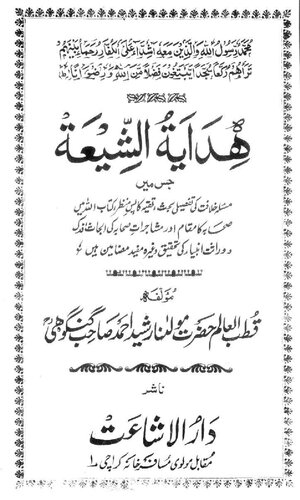 محمد رسول الله والذین معه اشداء علی الکفار رحماء بینهم
تراهم رکعا سجدا یبتغون فضلا من الله ورضوانا
هِدَايَةُ الشِّيعَة
جس میں
مسئلہ خلافت کی تفصیل بحث، تقیہ کا پس منظر کتاب اللہ میں
صحابہ کا مقام اور مشاجرات صحابہ کی ابحاث، فدک
و وراثت انبیاء کی تحقیق وغیرہ مفید مضامین ہیں
مؤلفہ
قطب العالم حضرت مولٰنا رشید احمد صاحب گنگوہی
ناشر
دَارُ الاشاعَت
مقابل مولوی مسافر خانہ کراچی ۱